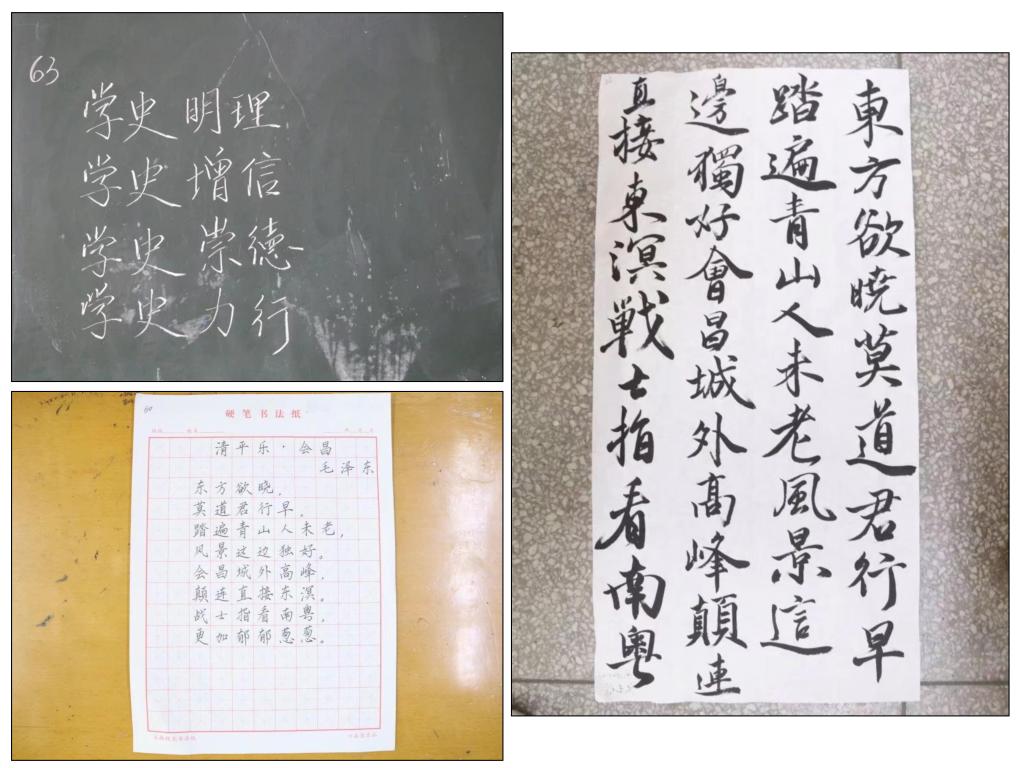 63
学史 明理
学史 增信
学史 崇德
学史 力行
60
硬笔书法纸
清平乐·会昌
毛泽东
东方欲晓，
莫道君行早，
踏遍青山人未老，
风景这边独好。
会昌城外高峰，
颠连直接东溟。
战士指看南粤，
更加郁郁葱葱。
東方欲暁莫道君行早
踏遍青山人未老風景這
邊獨好會昌城外高峰顛連
直接東溟戦士指看南粵